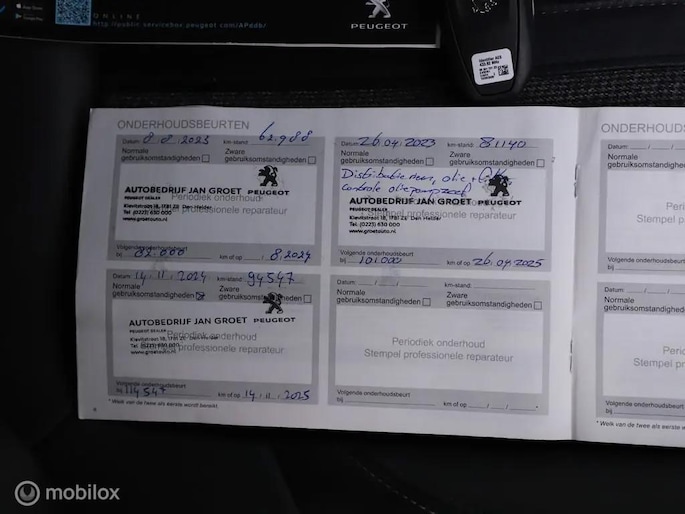 App Store
Google Play
ONLINE
http://public.servicebox.peugeot.com/APddb/
PEUGEOT
ONDERHOUDSBEURTEN
Datum: 8.8.2023 62.988
km-stand:
Normale
gebruiksomstandigheden
Zware
gebruiksomstandigheden
PEUGEOT
AUTOBEDRIJF JAN GROET
PEUGEOT DEALER
Periodiek onderhoud
Kievitstraat 18, 1781 ZS Den Helder
Tel. (0223) 630 000
Stempel professionele reparateur
www.groetauto.nl
Volgende onderhoudsbeurt
bij 82.000 km of op 8.2024
Datum: 26.04.2023 km-stand: 81140
Normale
gebruiksomstandigheden
Zware
gebruiksomstandigheden
Distributie riem, olie
controle
AUTOBEDRIJF JAN GROET PEUGEOT
PEUGEOT DEALER
Periodiek onderhoud
Kievitstraat 18, 1781 ZS Den Helder
Tel. (0223) 630 000
Stempel professionele reparateur
www.groetauto.nl
Volgende onderhoudsbeurt
bij 101.000 km of op 26.04.2025
Datum: 14.11.2024 km-stand: 94547
Normale
gebruiksomstandigheden
Zware
gebruiksomstandigheden
AUTOBEDRIJF JAN GROET PEUGEOT
PEUGEOT DEALER
Periodiek onderhoud
Kievitstraat 18, 1781 ZS Den Helder
Tel. (0223) 630 000
Stempel professionele reparateur
www.groetauto.nl
Volgende onderhoudsbeurt
bij 114547 km of op 14.11.2025
* Welk van de twee als eerste wordt bereikt.
Datum: km-stand:
Normale
gebruiksomstandigheden
Zware
gebruiksomstandigheden
Periodiek onderhoud
Stempel professionele reparateur
Volgende onderhoudsbeurt
bij km of op
Datum:
Normale
gebruiksomstandigheden
Stempel
Volgende onderhoudsbeurt
bij
Datum:
Normale
gebruiksomstandigheden
Stempel
Volgende onderhoudsbeurt
bij
* Welk van de twee als eerste w
mobilox